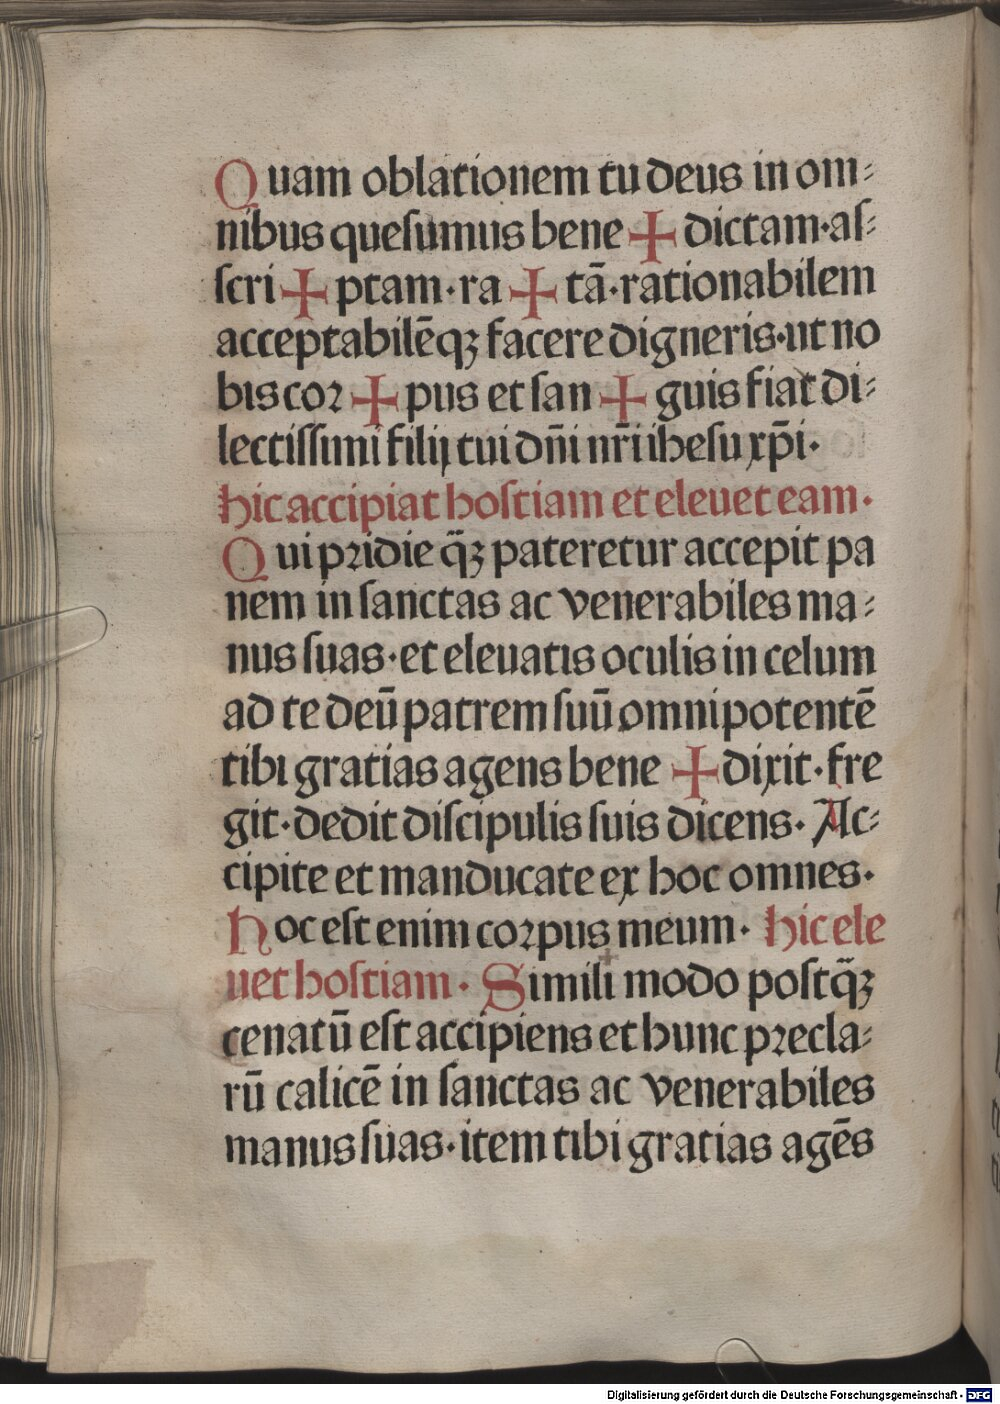 Quam oblationem tu deus in om⸗
nibus quesumus bene ✠ dictam·as⸗
scri ✠ ptam·ra ✠ tā·rationabilem
acceptabilēqꝫ facere digneris·ut no
bis cor ✠ pus et san ✠ guis fiat di⸗
lectissimi filij tui dn̄i nr̄i ihesu xp̄i·
hic accipiat hostiam et eleuet eam·
Qui pridie q̄ꝫ pateretur accepit pa
nem in sanctas ac venerabiles ma⸗
nus suas·et eleuatis oculis in celum
ad te deū patrem suū omnipotentē
tibi gratias agens bene ✠ dixit·fre
git·dedit discipulis suis dicens·Ac⸗
cipite et manducate ex hoc omnes·
Hoc est enim corpus meum· hic ele
uet hostiam· Simili modo postq̄ꝫ
cenatū est accipiens et hunc precla⸗
rū calicē in sanctas ac venerabiles
manus suas·item tibi gratias agēs
Digitalisierung gefördert durch die Deutsche Forschungsgemeinschaft - DFG